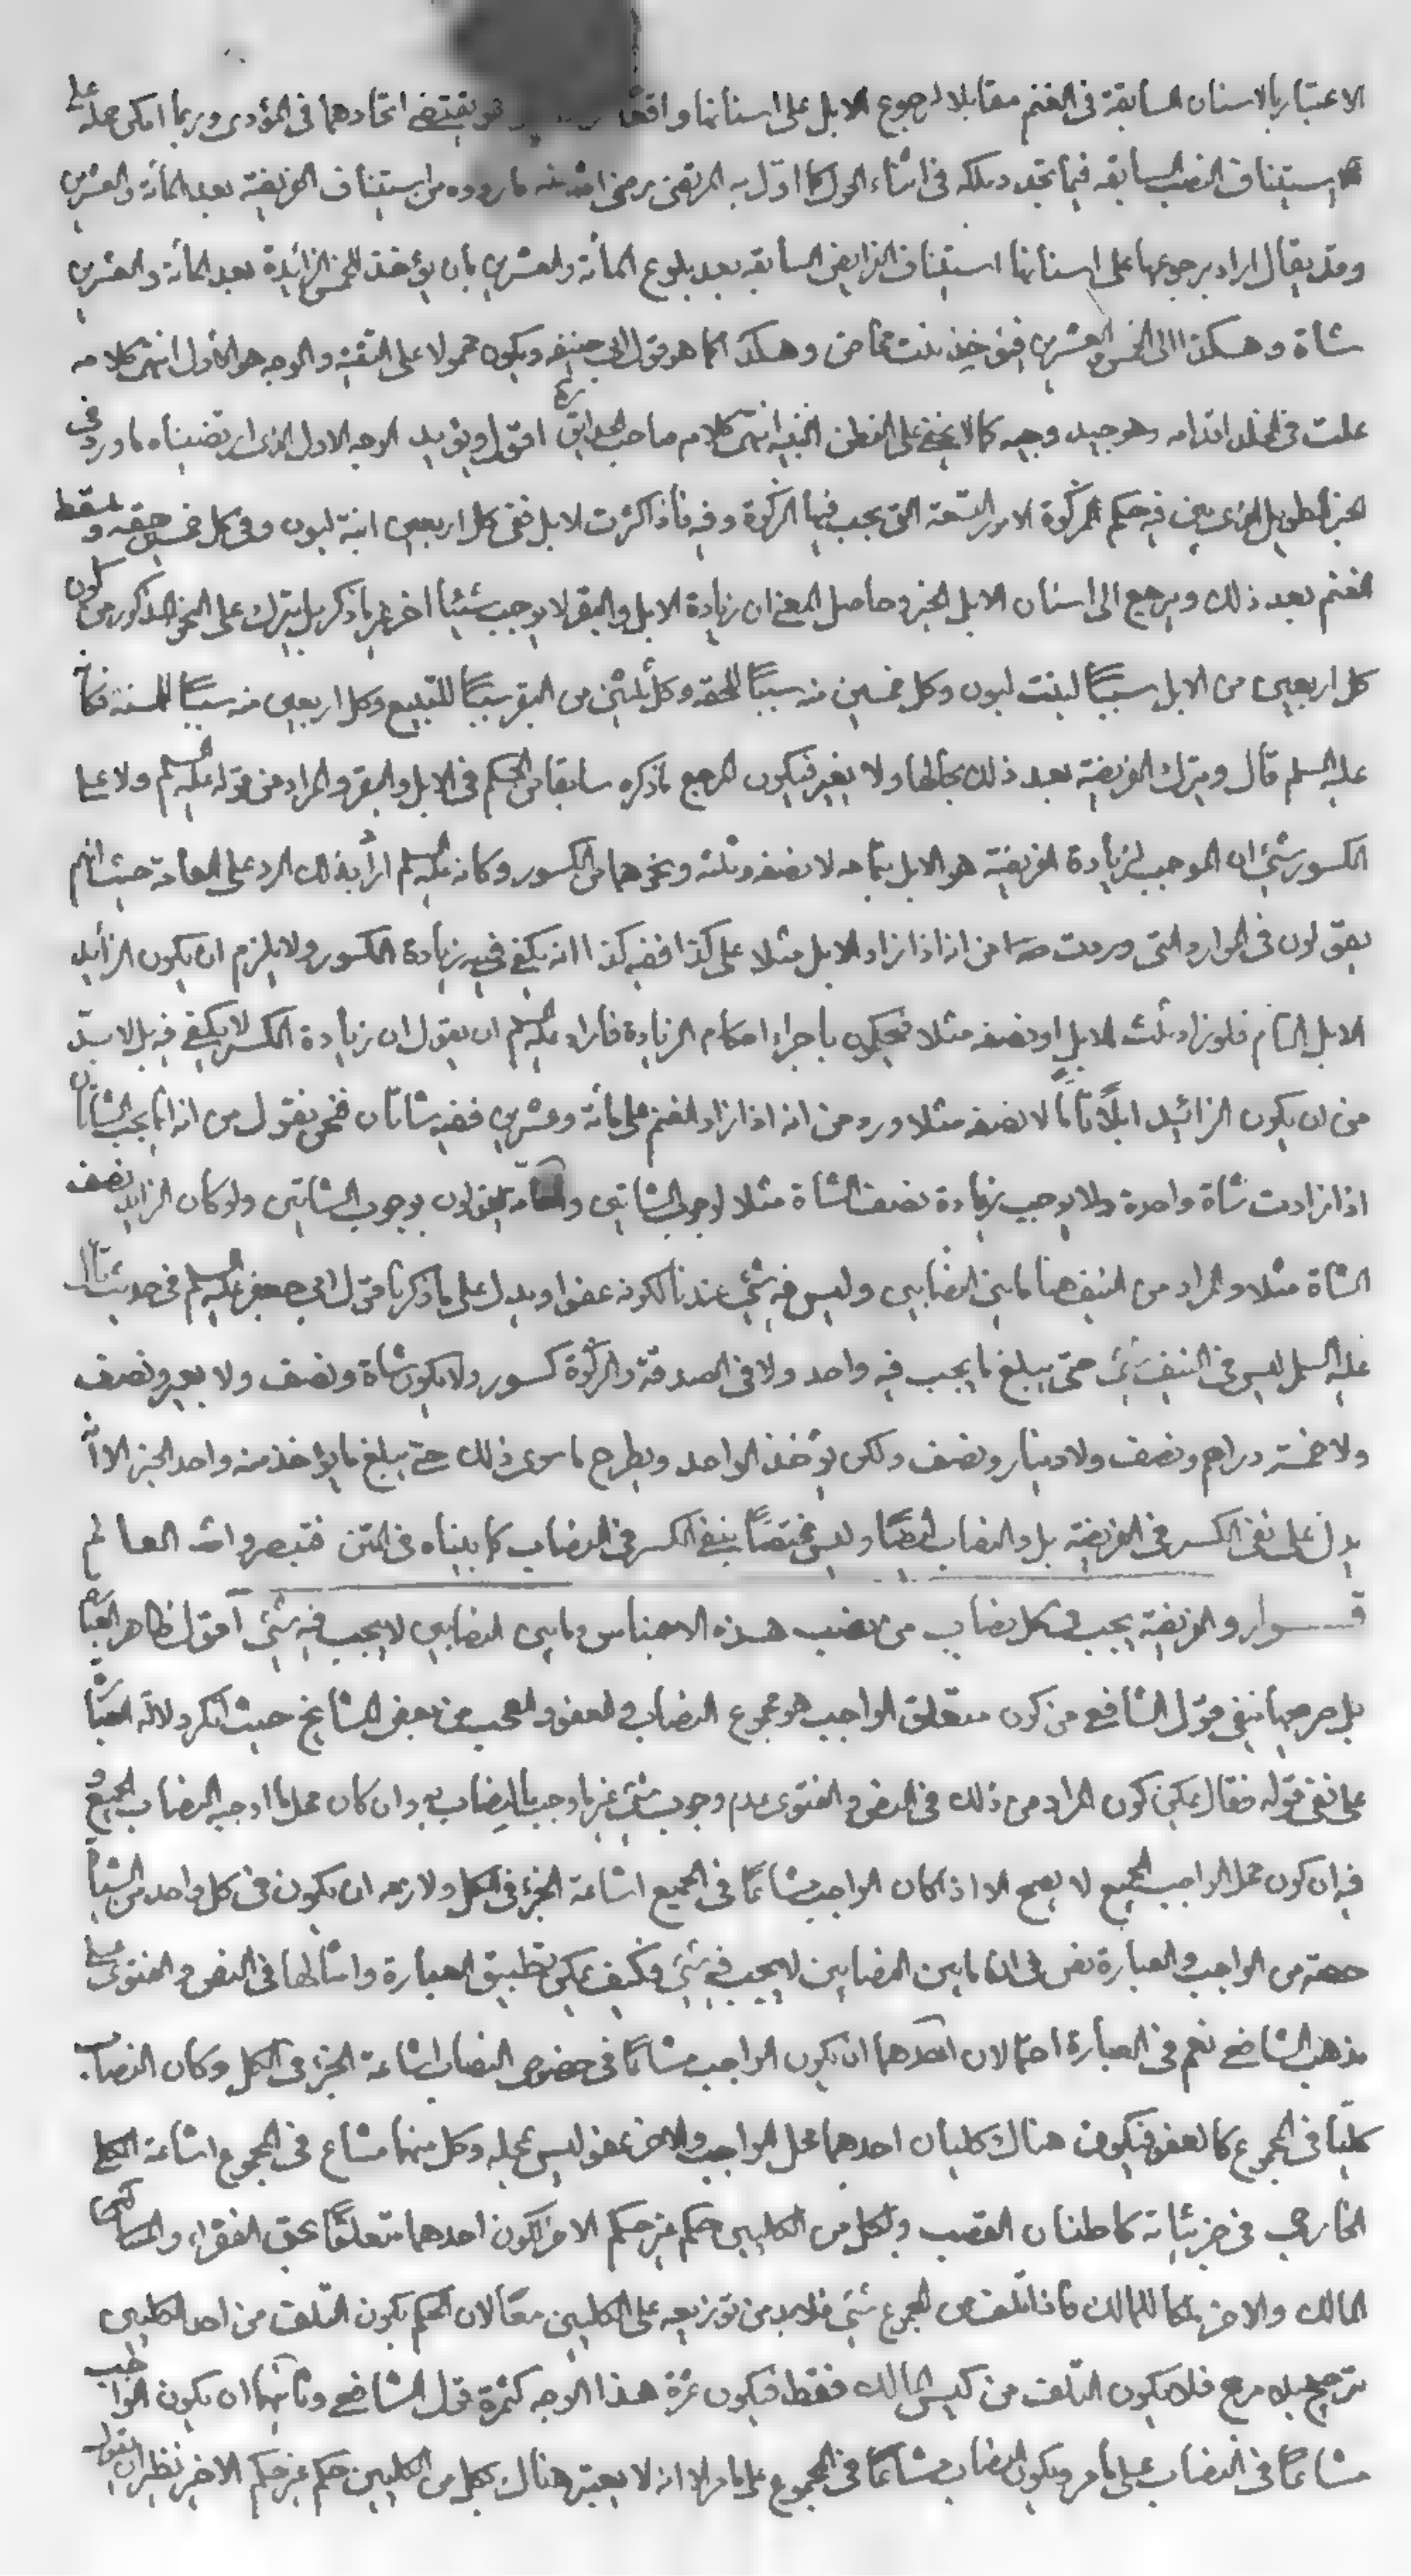 الاعتبار بالاسنان السابقة فى الغنم مقابلا لرجوع الابل على اسنانها واقعًا هو يقتضى اتحادهما فى المؤدى وربما امكن حمله على
استيناف النصب السابقه فيما تجدد ملكه فى اثناء الحول كما اوّل به المرتضى رضى الله عنه ما رووه من استيناف الفريضة بعد المأة والعشرين
وقد يقال اراد برجوعها على اسنانها استيناف الفرايض السابقه بعد بلوغ المأة والعشرين بان يؤخذ للخمس الزائدة بعد المأة والعشرين
شاة وهكذا الى الخمس والعشرين فيؤخذ بنت مخاض وهكذا كما هو قول ابى حنيفه ويكون محمولا على التقية والوجه هو الاول انتهى كلامه
علت فى الخلد اقدامه وهو جيد وجيه كما لا يخفى على الفطن النبيه انتهى كلام صاحب الحدايق ره اقول ويؤيد الوجه الاول الذى ارتضيناه ما ورد فى
الخبر الطويل الذى بين فيه حكم الزكوة الامور التسعة التى يجب فيها الزكوة وفيه فاذا كثرت الابل ففى كل اربعين ابنة لبون وفى كل خمسين حقه ويسقط
الغنم بعد ذلك ويرجع الى اسنان الابل الخبر وحاصل المعنى ان زيادة الابل والبقر لا يوجب شيئا اخر غير ما ذكر بل يترك على النحو المذكور من كون
كل اربعين من الابل سببًا لبنت لبون وكل خمسين منه سببًا للحقه وكل ثلثين من البقر سببًا للتبيع وكل اربعين منه سببًا للمسنة فكأنه
عليه السلم قال ويترك الفريضة بعد ذلك بحالها ولا يغير فيكون المرجع ما ذكره سابقا من الحكم فى الابل والبقر والمراد من قوله عليه السلم ولا على
الكسور شئ ان الموجب لزيادة الفريضة هو الابل بتمامه لا نصفه وثلثه ونحوهما من الكسور وكانه عليه السلم اراد بذلك الرد على العامة حيث انهم
يقولون فى الموارد التى وردت من انه اذا زاد الابل مثلا على كذا ففيه كذا انه يكفى فيه زيادة الكسور ولا يلزم ان يكون الزايد
الابل التام فلو زاد ثلث الابل او نصفه مثلا فيحكمون باجراء احكام الزيادة فاراد عليه السلم ان يقول ان زيادة الكسر لا يكفى فيه بل لا بد
من ان يكون الزائد ابلًا تامًا لا نصفه مثلا ورد من انه اذا زاد الغنم على مأة وعشرين ففيه شاتان فنحن نقول من انه انما يجب الشاتان
اذا زادت شاة واحدة ولا يوجب زيادة نصف الشاة مثلا لوجوب الشاتين والعامه يقولون بوجوب الشاتين ولو كان الزايد نصف
الشاة مثلا والمراد من النيف هنا ما بين النصابين وليس فيه شئ عندنا لكونه عفوا ويدل على ما ذكرنا قول ابى جعفر عليه السلم فى حديث قال
عليه السلم ليس فى النيف شئ حتى يبلغ ما يجب فيه واحد ولا فى الصدقة والزكوة كسور ولا يكون شاة ونصف ولا بعير ونصف
ولا خمسة دراهم ونصف ولا دينار ونصف ولكن يؤخذ الواحد ويطرح ما سوى ذلك حتى يبلغ ما يؤخذ منه واحد الخبر الا انه
يدل على نفى الكسر فى الفريضة بل والنصاب ايضًا وليس مختصًا بنفى الكسر فى النصاب كما بيناه فى المتن فتبصر والله العالم
قوله والفريضة يجب فى كل نصاب من نصب هذه الاجناس وما بين النصابين لا يجب فيه شئ اقول ظاهر العبارة
بل صريحها نفى قول الشافعى من كون متعلق الواجب هو مجموع النصاب والعفو والعجب من بعض المشايخ حيث انكر دلالة العبارة
على نفى قوله فقال يمكن كون المراد من ذلك فى النص والفتوى عدم وجوب شئ غير ما وجب بالنصاب وان كان محل ما اوجبه النصاب الجميع و
فيه ان كون محل الواجب الجميع لا يصح الا اذا كان الواجب مشاعًا فى الجميع اشاعة الجزء فى الكل ولازمه ان يكون فى كل واحد من الشياه
حصة من الواجب والعبارة نص فى ان ما بين النصابين لا يجب فيه شئ فكيف يمكن تطبيق العبارة وامثالها فى النص والفتوى على
مذهب الشافعى نعم فى العبارة احتمالان احدهما ان يكون الواجب مشاعًا فى خصوص النصاب اشاعة الجزء فى الكل وكان النصاب
كليًا فى المجموع كالعفو فيكون هناك كليان احدهما محل الواجب والاخر عفو ليس بمحله وكل منهما مشاع فى المجموع اشاعة الكلى
الخارجى فى جزئياته كاطنان القصب ولكل من الكليين حكم غير حكم الاخر لكون احدهما متعلقًا بحق الفقراء والمساكين
المالك والاخر ملكا للمالك فاذا تلف من المجموع شئ فلا بد من توزيعه على الكليين معًا لان الحكم بكون التلف من احد الكليين
ترجيح بلا مرجح فلا يكون التلف من كيس المالك فقط فيكون ثمرة هذا الوجه كثمرة قول الشافعى وثانيهما ان يكون الواجب
مشاعًا فى النصاب على ما مر ويكون النصاب مشاعًا فى المجموع على ما مر الا انه لا يعتبر هناك لكل من الكليين حكم غير حكم الاخر نظير ان يقول